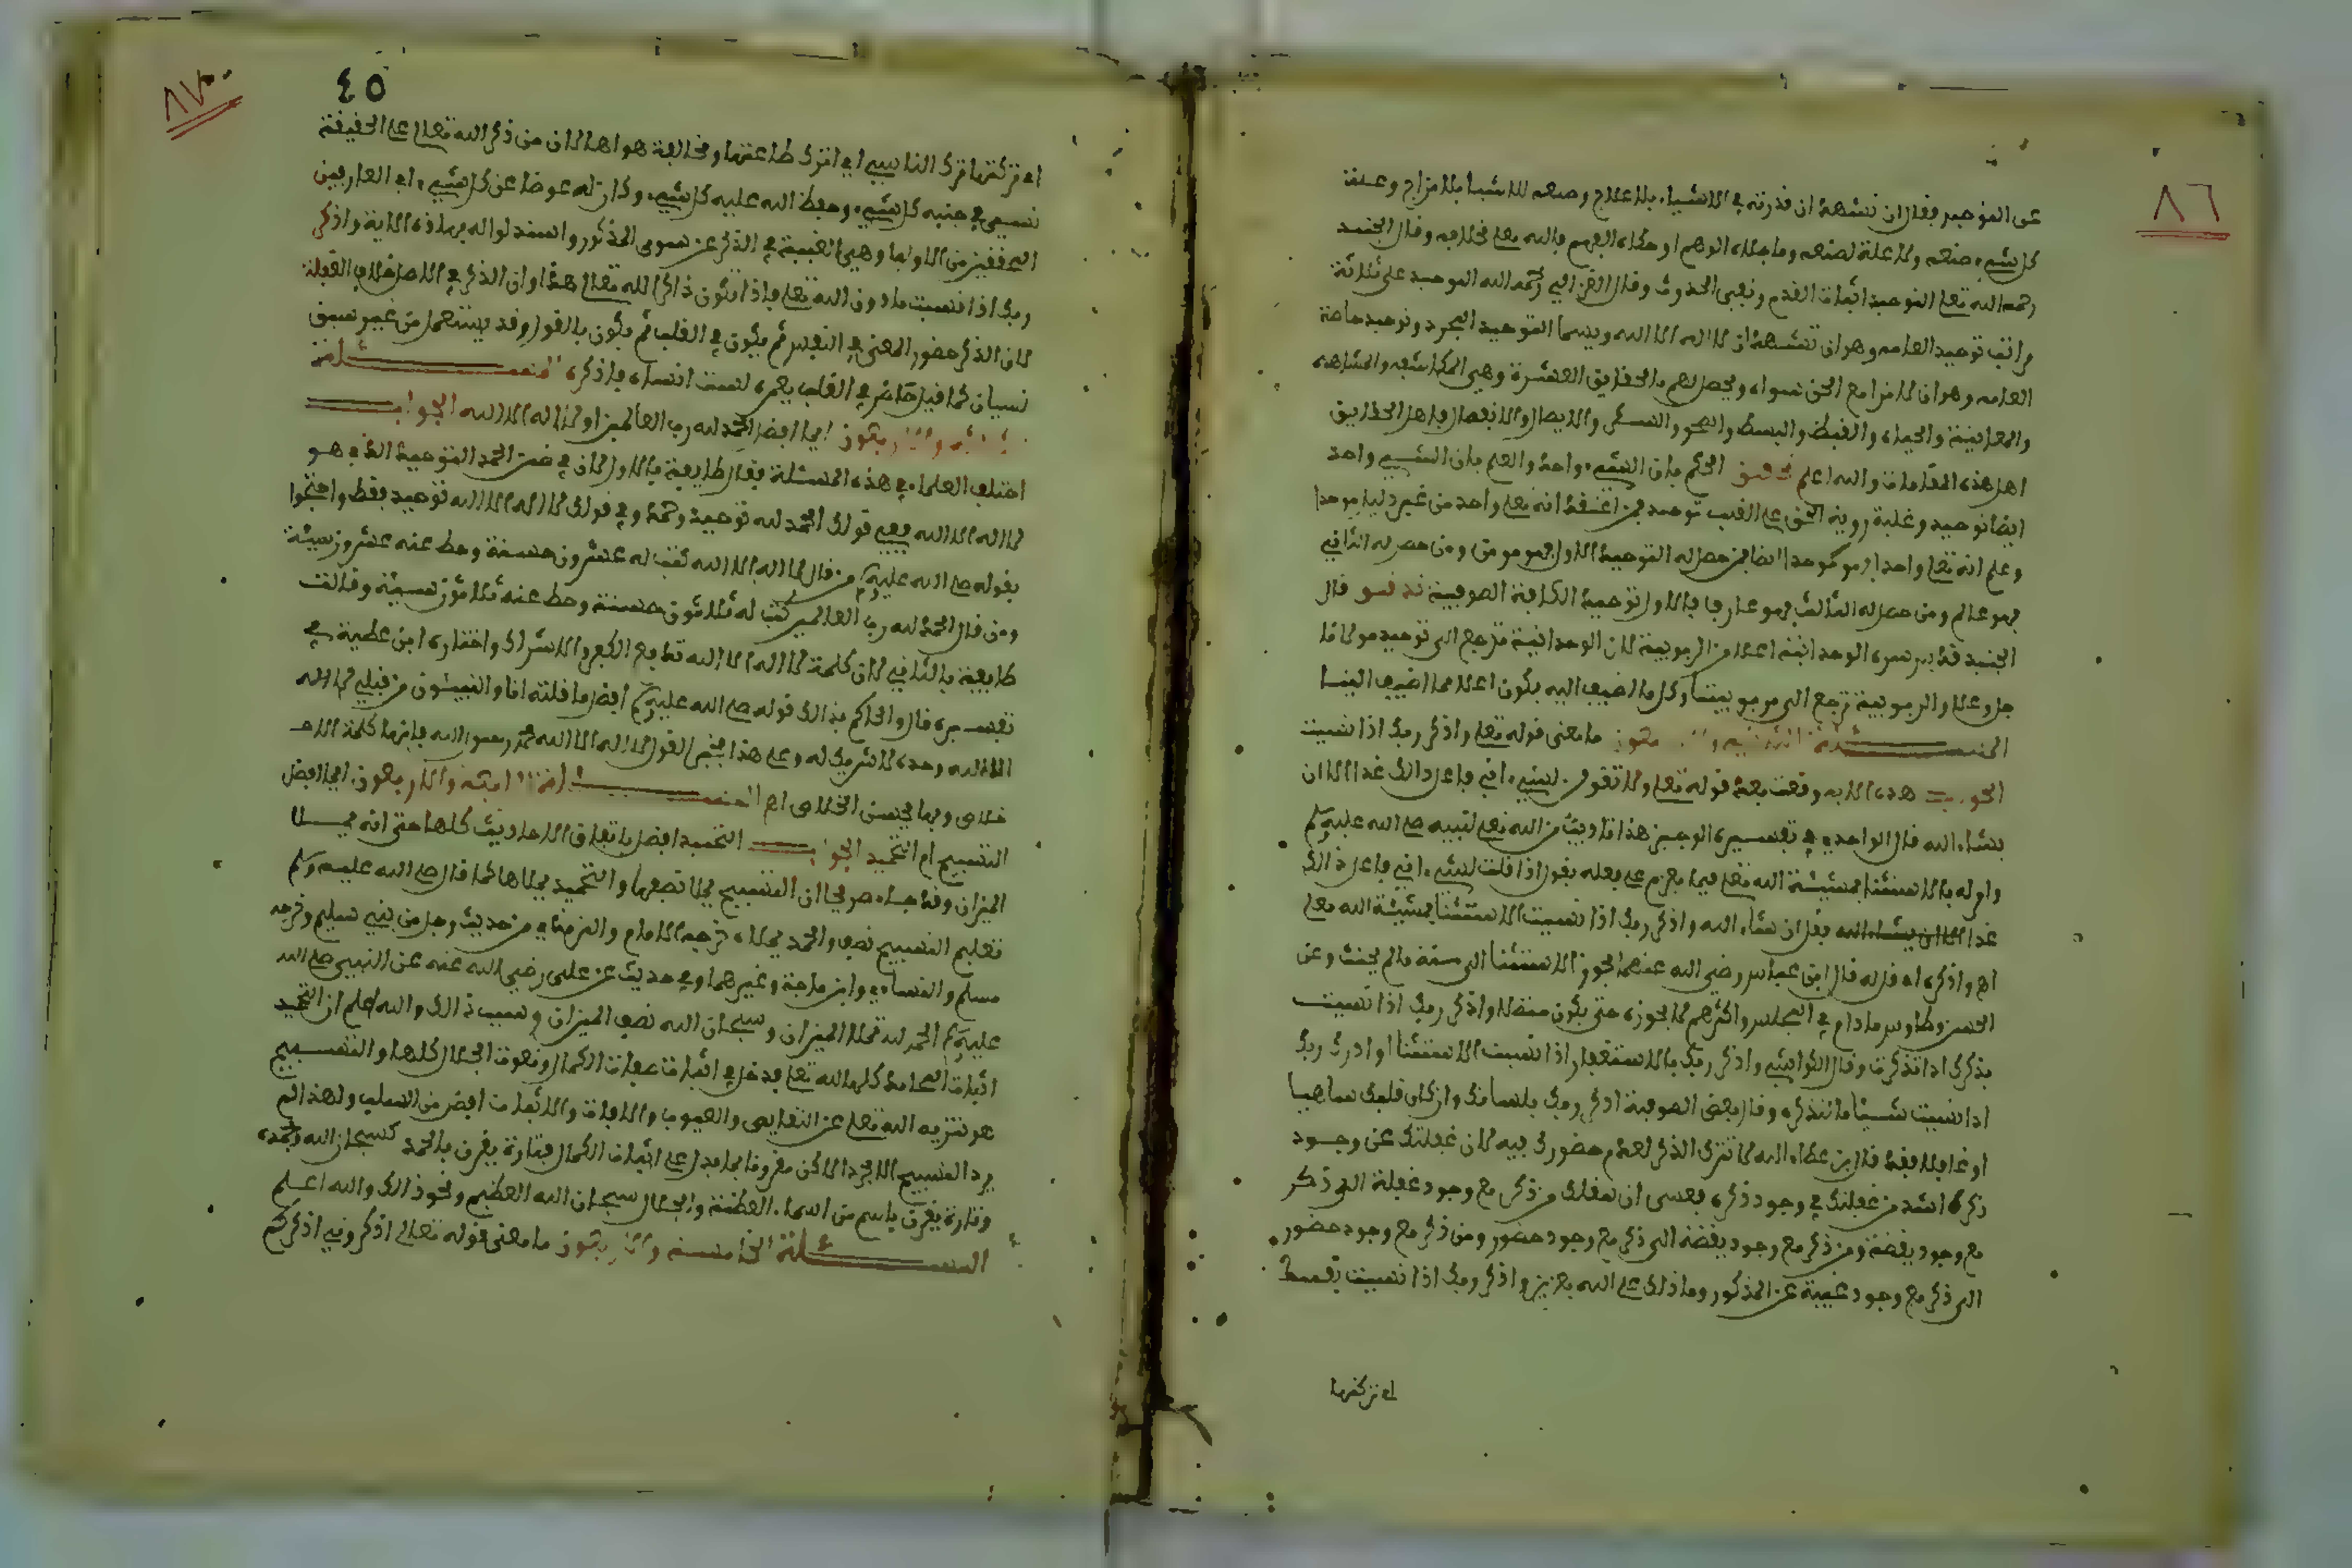 ٨٦
عن التوحيد فقال ان تشهد ان قدرته في الاشياء بلا علاج وصنعه للاشيا بلا مزاج وعلة
كل شيء صنعه ولا علة لصنعه وما جلاه الوهم او حكاه الفهم فالله تعلى بخلافه وقال الجنيد
رحمه الله تعلى التوحيد اثبات القدم ونفي الحدوث وقال الغزالي رحمه الله التوحيد على ثلاثة
مراتب توحيد العامه وهو ان تشهد ان لا اله الا الله ويسما التوحيد المجرد وتوحيد خاصة
العامه وهو ان لا مع الحق سواه ويحصل لهم بالحقايق العشرة وهي المكاشفه والمشاهده
والمعاينة والحياه والقبط والبسط والصحو والسكر والاتصال والانفصال فاهل الحقايق
اهل هذه المقامات والله اعلم تحقيق الحكم بان الشيء واحد والعلم بان الشيء واحد
ايضا توحيد وغلبة روية الحق على القلب توحيد فمن اعتقد انه تعلى واحد من غير دليل موحدا
وعلم انه تعلى واحد فهو موحد ايضا فمن حصل له التوحيد الاول فهو مومن ومن حصل له الثاني
فهو عالم ومن حصل له الثالث فهو عارف فالاول توحيد الكافة الصوفية تدقيق قال
الجنيد قدس سره الوحدانية اعلا من الربوبية لان الوحدانية ترجع الى توحيد مولانا
جل وعلا والربوبية ترجع الى مربوبيتنا وكل ما اضيف اليه يكون اعلا مما اضيف الينا
المسئلة الثالثة والاربعون ما معنى قوله تعلى واذكر ربك اذا نسيت
الجواب هذه الايه وقعت بعد قوله تعلى ولا تقولن لشيء اني فاعل ذالك غدا الا ان
يشاء الله قال الواحدي في تفسيره الوجيز هذا تاديب من الله تعلى لنبيه صلى الله عليه وسلم
وامر له بالاستثنا بمشيئة الله تعلى فيما يعزم على فعله يقول اذا قلت لشيء اني فاعل ذالك
غدا الا ان يشاء الله فقل ان شاء الله واذكر ربك اذا نسيت الاستثنا بمشيئة الله تعلى
اه واذكره اه قاله قال ابن عباس رضي الله عنهما يجوز الاستثنا الى سنة ما لم يحنث وعن
الحسن وطاوس ما دام في المجلس واكثرهم لا يجوزه حتى يكون متصلا واذكر ربك اذا نسيت
بذكرك اذا تذكرت وقال الكواشي واذكر ربك بالاستغفار اذا نسيت الاستثنا او اذكر ربك
اذا نسيت شيئا ما تذكره وقال بعض الصوفية اذكر ربك بلسانك وان كان قلبك ساهيا
او غافلا فقد قال بن عطاء الله لا تترك الذكر لعدم حضورك فيه لان غفلتك عن وجود
ذكره اشد من غفلتك في وجود ذكره فعسى ان ينقلك من ذكر مع وجود غفلة الى ذكر
مع وجود يقضة ومن ذكر مع وجود يقضة الى ذكر مع وجود حضور ومن ذكر مع وجود حضور
الى ذكر مع وجود غيبة عن المذكور وما ذلك على الله بعزيز واذكر ربك اذا نسيت نفسك
اي تركتها
٨٧
٤٥
اي تركتها ترك الناسي اي اترك طاعتها ومخالفة هواها لان من ذكر الله تعالى على الحقيقة
نسي في جنبه كل شيء وحفظ الله عليه كل شيء وكان له عوضا عن كل شيء اي العارفين
المحققين من الاوليا وهي الغيبة في الذكر عن سوى المذكور واستدلوا له بهاذه الاية واذكر
ربك اذا نسيت ما دون الله تعلى فاذا تكون ذاكرا لله تعالى هذا وان الذكر في الاصل خلاف الغفلة
لان الذكر حضور المعنى في النفس ثم يكون في القلب ثم يكون بالقول وقد يستعمل من غير سبق
نسيان كما قيل حاضر في القلب يعمره لست انساه فاذكره المسئلة
والاربعون ايما افضل الحمد لله رب العالمين او لا اله الا الله الجواب
اختلف العلماء في هذه المسئلة فقال طايفة بالاول لان في ضمن الحمد التوحيد الذي هو
لا اله الا الله ففي قولك الحمد لله توحيد وحمد وفي قولك لا اله الا الله توحيد فقط واحتجوا
بقوله صلى الله عليه وسلم من قال لا اله الا الله كتب له عشرون حسنة وحط عنه عشرون سيئة
ومن قال الحمد لله رب العالمين كتب له ثلاثون حسنة وحط عنه ثلاثون سيئة وقالت
طايفة بالثاني لان كلمة لا اله الا الله تدفع الكفر والاشراك واختاره ابن عطية في
تفسيره قال والحاكم بذالك قوله صلى الله عليه وسلم افضل ما قلته انا والنبيئون من قبلي لا اله
الا الله وحده لا شريك له وعلى هذا القول لا اله الا الله محمد رسول الله فانها كلمة الا
خلاص وبها يحسن الخلاص اه المسئلة الرابعة والاربعون ايما افضل
التسبيح ام التحميد الجواب التحميد افضل باتفاق الاحاديث كلها حتى انه يملا
الميزان وقد جاء صريحا ان التسبيح يملا نصفها والتحميد يملاها كما قال صلى الله عليه وسلم
تعليم التسبيح نصف والحمد يملاه خرجه الامام والترمذي من حديث رجل من بني سليم وخرجه
مسلم والنساءي وابن ماجة وغيرهما وفي حديث عن علي رضي الله عنه عن النبي صلى الله
عليه وسلم الحمد لله تملا الميزان وسبحان الله نصف الميزان وسبب ذالك والله اعلم ان التحميد
اثبات المحامد كلها لله تعلى فدخل في اثبات صفات الكمال ونعوت الجلال كلها والتسبيح
هو تنزيه الله تعلى عن النقايص والعيوب والافات والاثبات افضل من السلب ولهذا لم
يرد التسبيح الا مجردا لاكن مقرونا بما يدل على اثبات الكمال فتارة يقرن بالحمد كسبحان الله وبحمده
وتارة يقرن باسم من اسماء العظمة والجلال سبحان الله العظيم ونحو ذالك والله اعلم
المسئلة الخامسة والاربعون ما معنى قوله تعالى اذكروني اذكركم